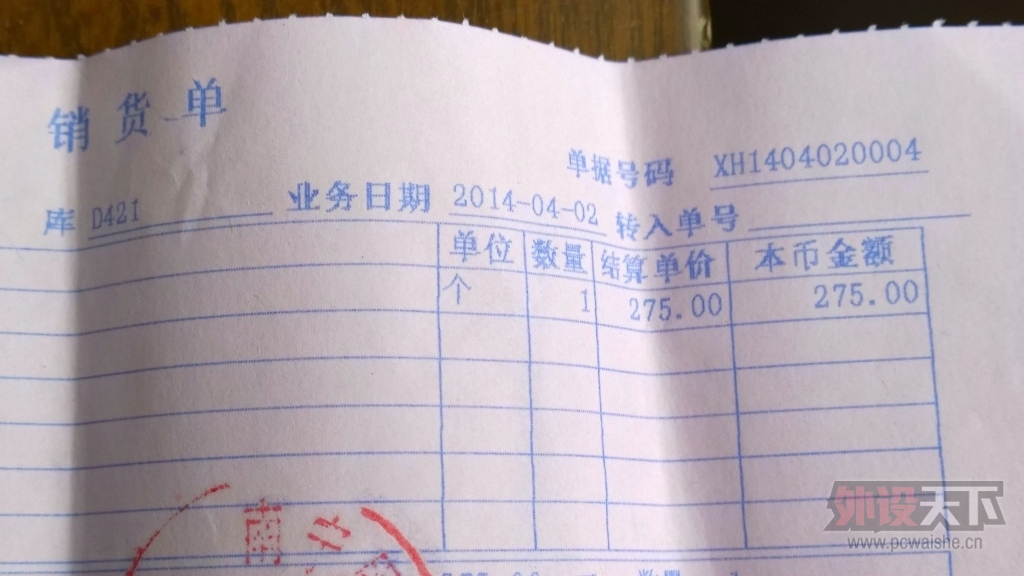 销货单
单据号码 XH1404020004
库 D421 业务日期 2014-04-02 转入单号
单位 数量 结算单价 本币金额
个 1 275.00 275.00
南
外设天下
www.pcwaishe.cn